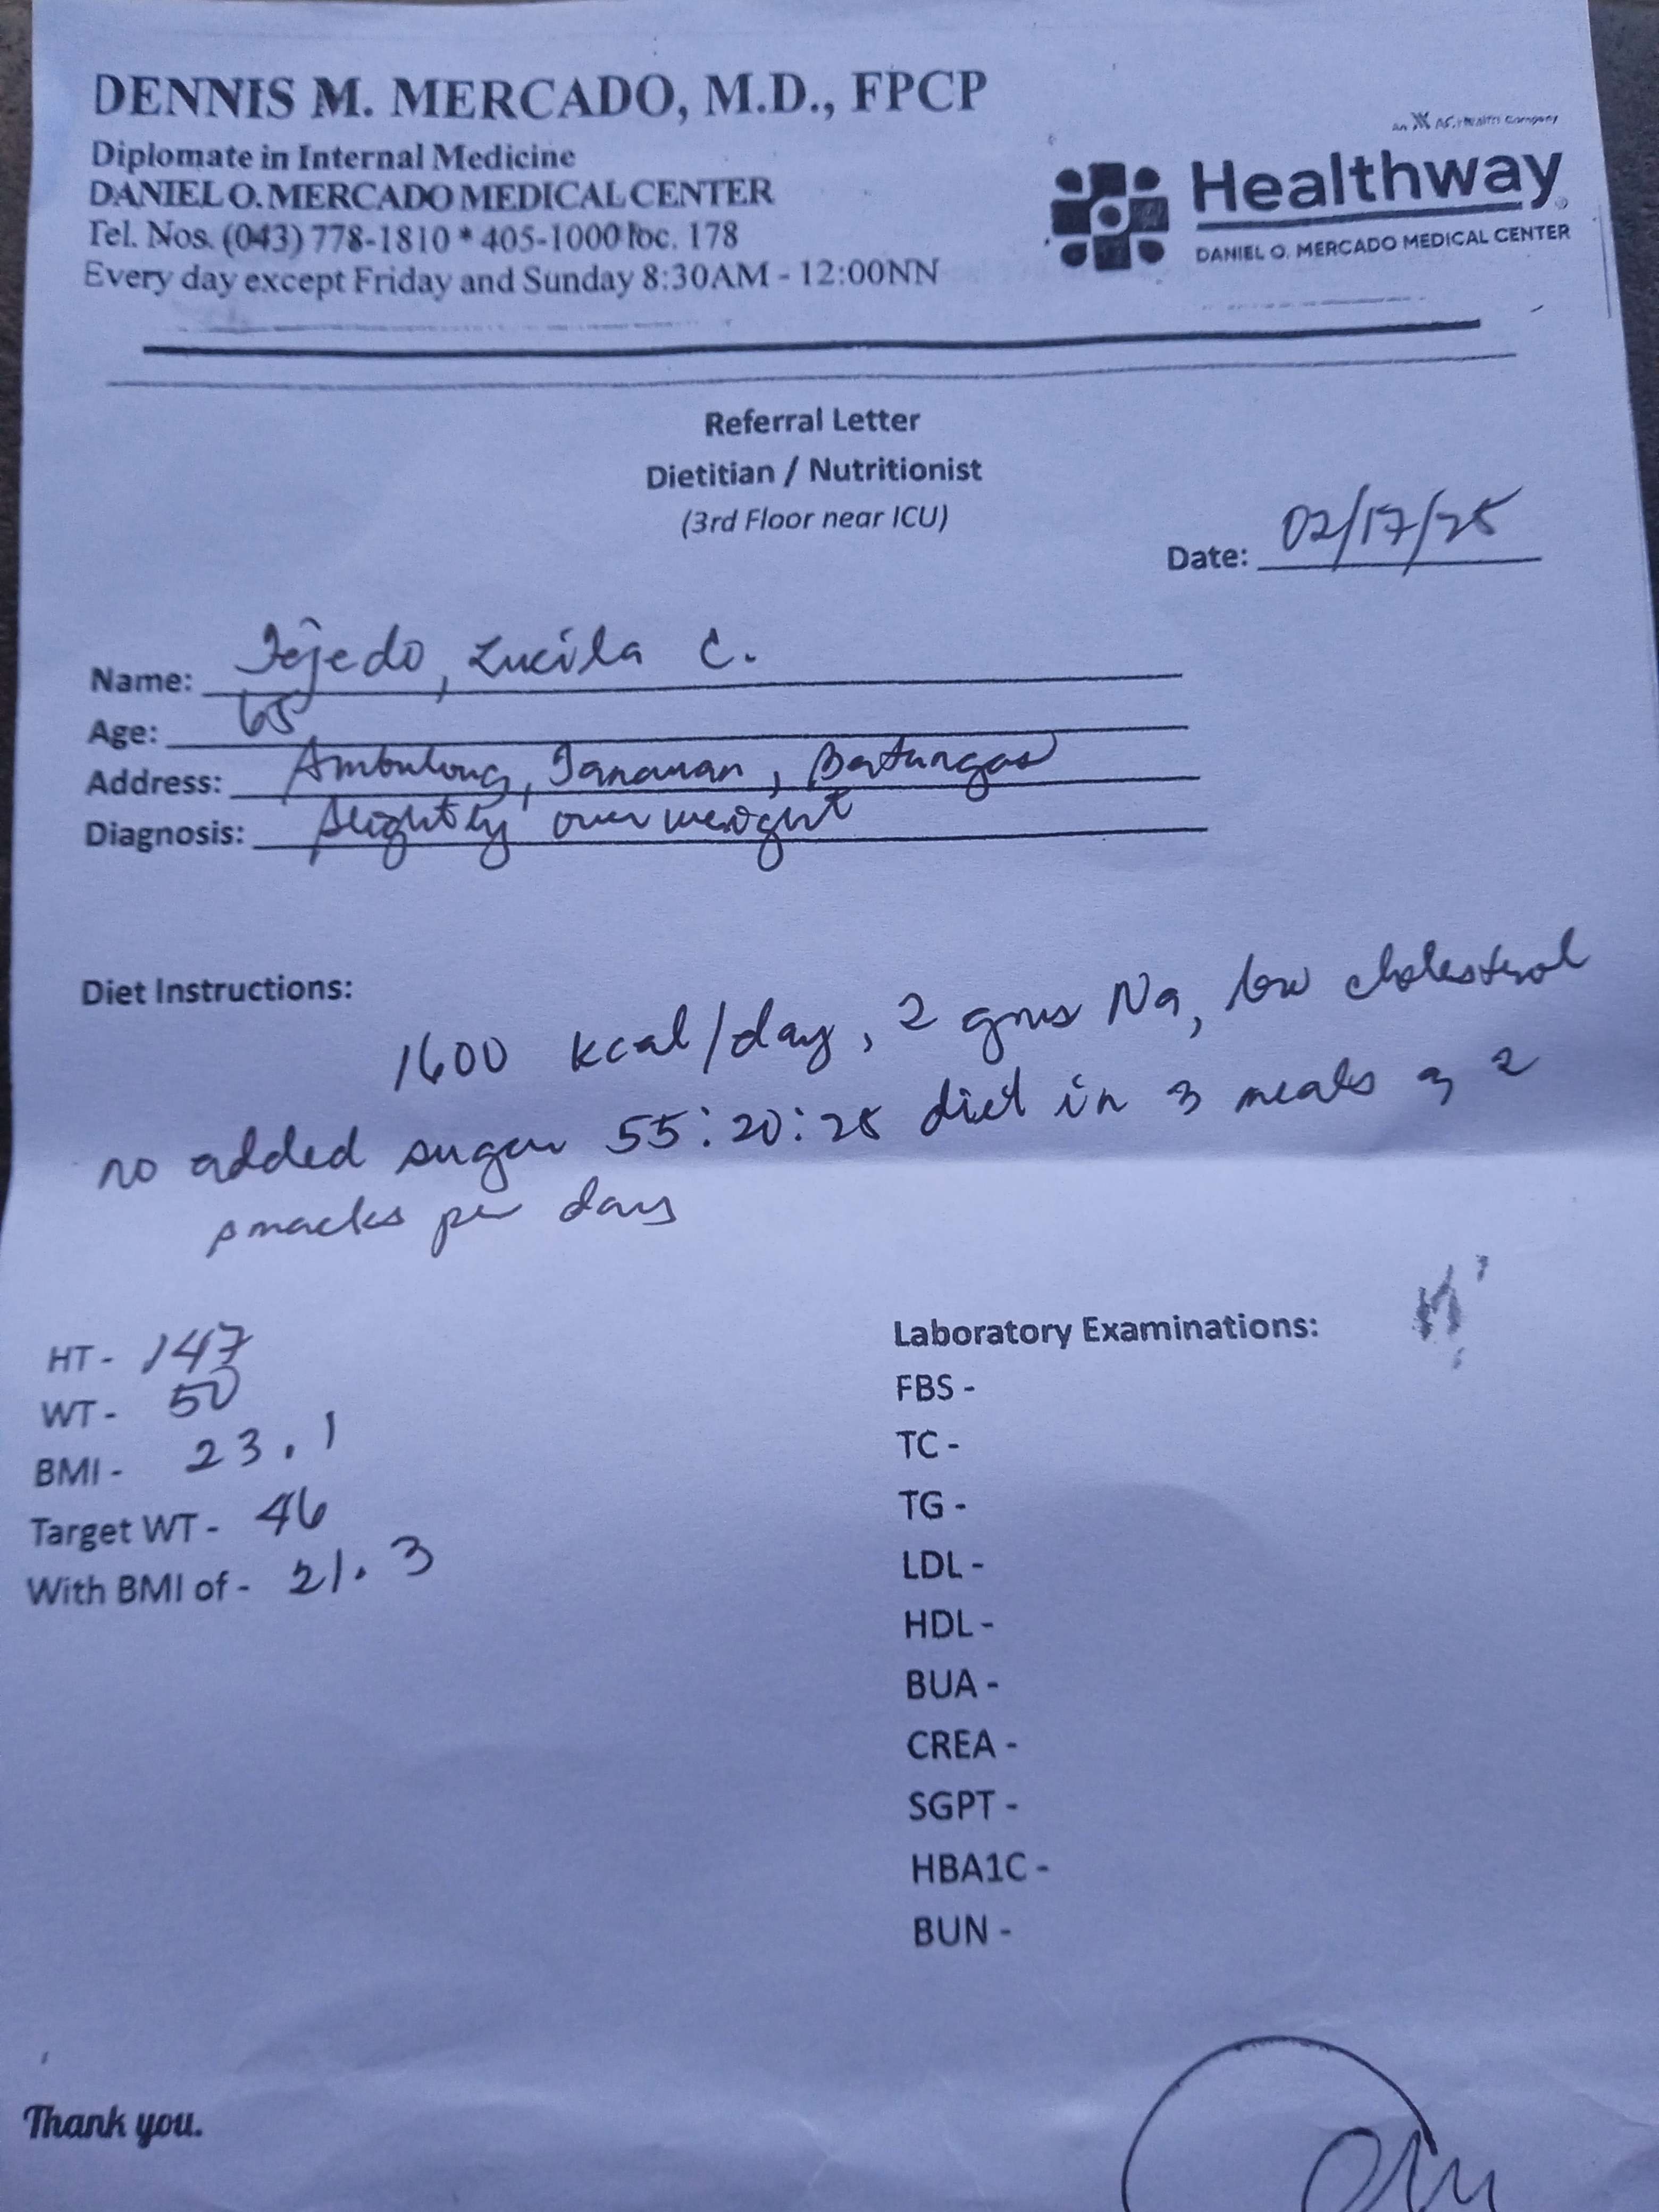 DENNIS M. MERCADO, M.D., FPCP
Diplomate in Internal Medicine
DANIEL O. MERCADO MEDICAL CENTER
Tel. Nos. (043) 778-1810 * 405-1000 loc. 178
Every day except Friday and Sunday 8:30AM - 12:00NN
An AC Health Company
Healthway
DANIEL O. MERCADO MEDICAL CENTER
Referral Letter
Dietitian / Nutritionist
(3rd Floor near ICU)
Date: 02/17/25
Name: Tejedo, Lucila C.
Age: 65
Address: Ambulong, Tanauan, Batangas
Diagnosis: slightly overweight
Diet Instructions:
1600 kcal/day, 2 gms Na, low cholesterol
no added sugar 55:20:25 diet in 3 meals 2
snacks per day
HT - 147
WT - 50
BMI - 23.1
Target WT - 46
With BMI of - 21.3
Laboratory Examinations:
FBS -
TC -
TG -
LDL -
HDL -
BUA -
CREA -
SGPT -
HBA1C -
BUN -
Thank you.